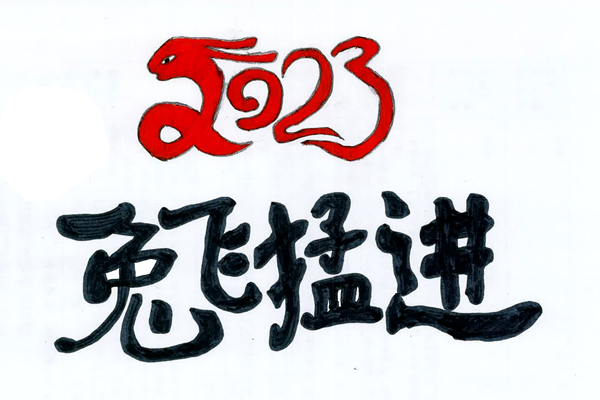 2023
兔飞猛进